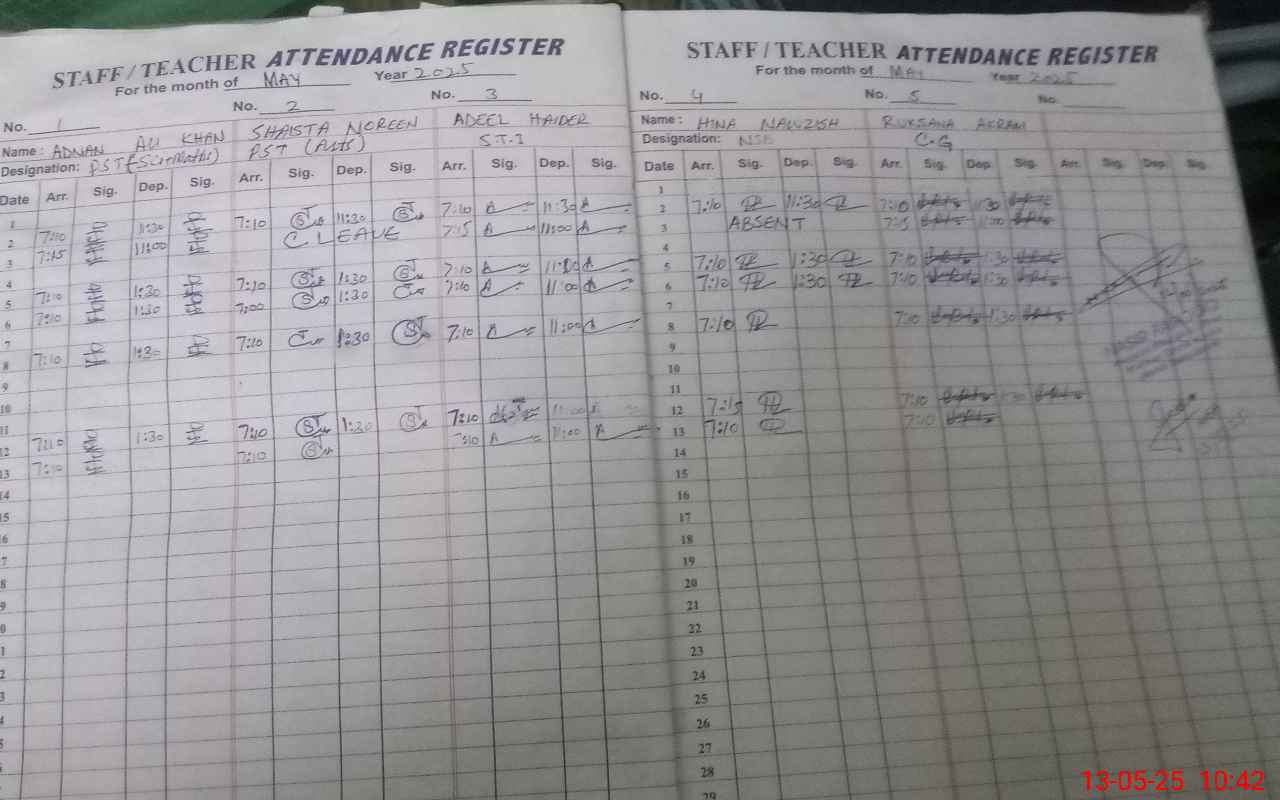 STAFF / TEACHER ATTENDANCE REGISTER
For the month of MAY Year 2025
No. 1 No. 2 No. 3
Name : ADNAN ALI KHAN SHAISTA NOREEN ADEEL HAIDER
Designation: PST (Sci-Maths) PST (Arts) S.T.I
Date Arr. Sig. Dep. Sig. Arr. Sig. Dep. Sig. Arr. Sig. Dep. Sig.
1
2 7:10 11:30 7:10 11:30 7:10 11:30
3 7:15 11:00 C LEAVE 7:15 11:00
4
5 7:10 1:30 7:10 1:30 7:10 11:00
6 7:10 1:30 7:00 1:30 7:10 11:00
7
8 7:10 1:30 7:10 1:30 7:10 11:00
9
10
11
12 7:10 1:30 7:10 1:30 7:10 11:00
13 7:10 7:10 7:10 11:00
14
15
STAFF / TEACHER ATTENDANCE REGISTER
For the month of MAY Year 2025
No. 4 No. 5 No.
Name : HINA NAWZISH RUKSANA AKRAM
Designation: C.G
Date Arr. Sig. Dep. Sig. Arr. Sig. Dep. Sig. Arr. Sig. Dep. Sig.
1
2 7:10 11:30 7:10 11:30
3 ABSENT 7:15 11:00
4
5 7:10 1:30 7:10 1:30
6 7:10 1:30 7:10 1:30
7
8 7:10 7:10 1:30
9
10
11
12 7:15 7:10 1:30
13 7:10 7:10
14
15
16
17
18
19
20
21
22
23
24
25
26
27
28
29
13-05-25 10:42